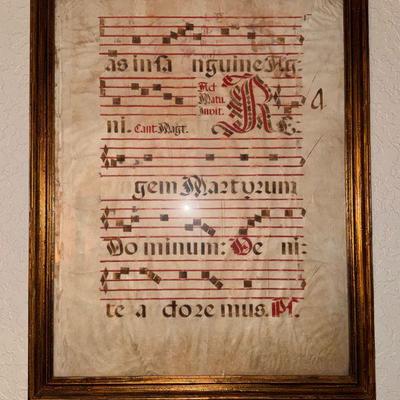 as in sa nguine Ag-
Act
Matu
Invit.
ni. Cant Magt. RE-
gem Martyrum
Dominum: Ve ni-
te a dore mus. Ps.